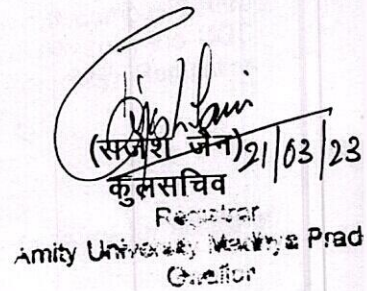 (राजेश जैन) 21/03/23
कुलसचिव
Registrar
Amity University Madhya Prad
Gwalior